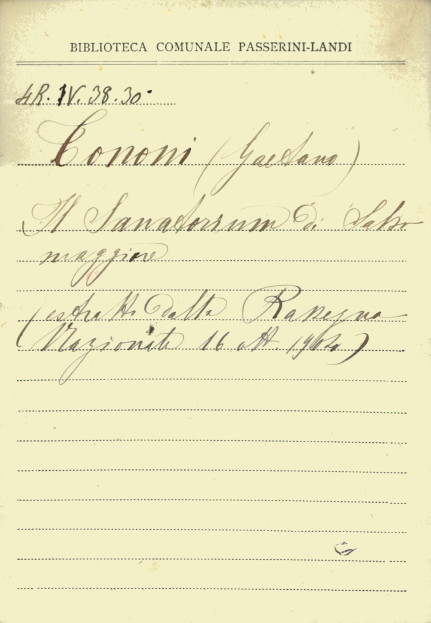 BIBLIOTECA COMUNALE PASSERINI-LANDI
4R.IV.38.30
Tononi (Gaetano)
Il Sanatorium di Salso
maggiore
(estratto dalla Rassegna
Nazionale 16 ott. 1904)